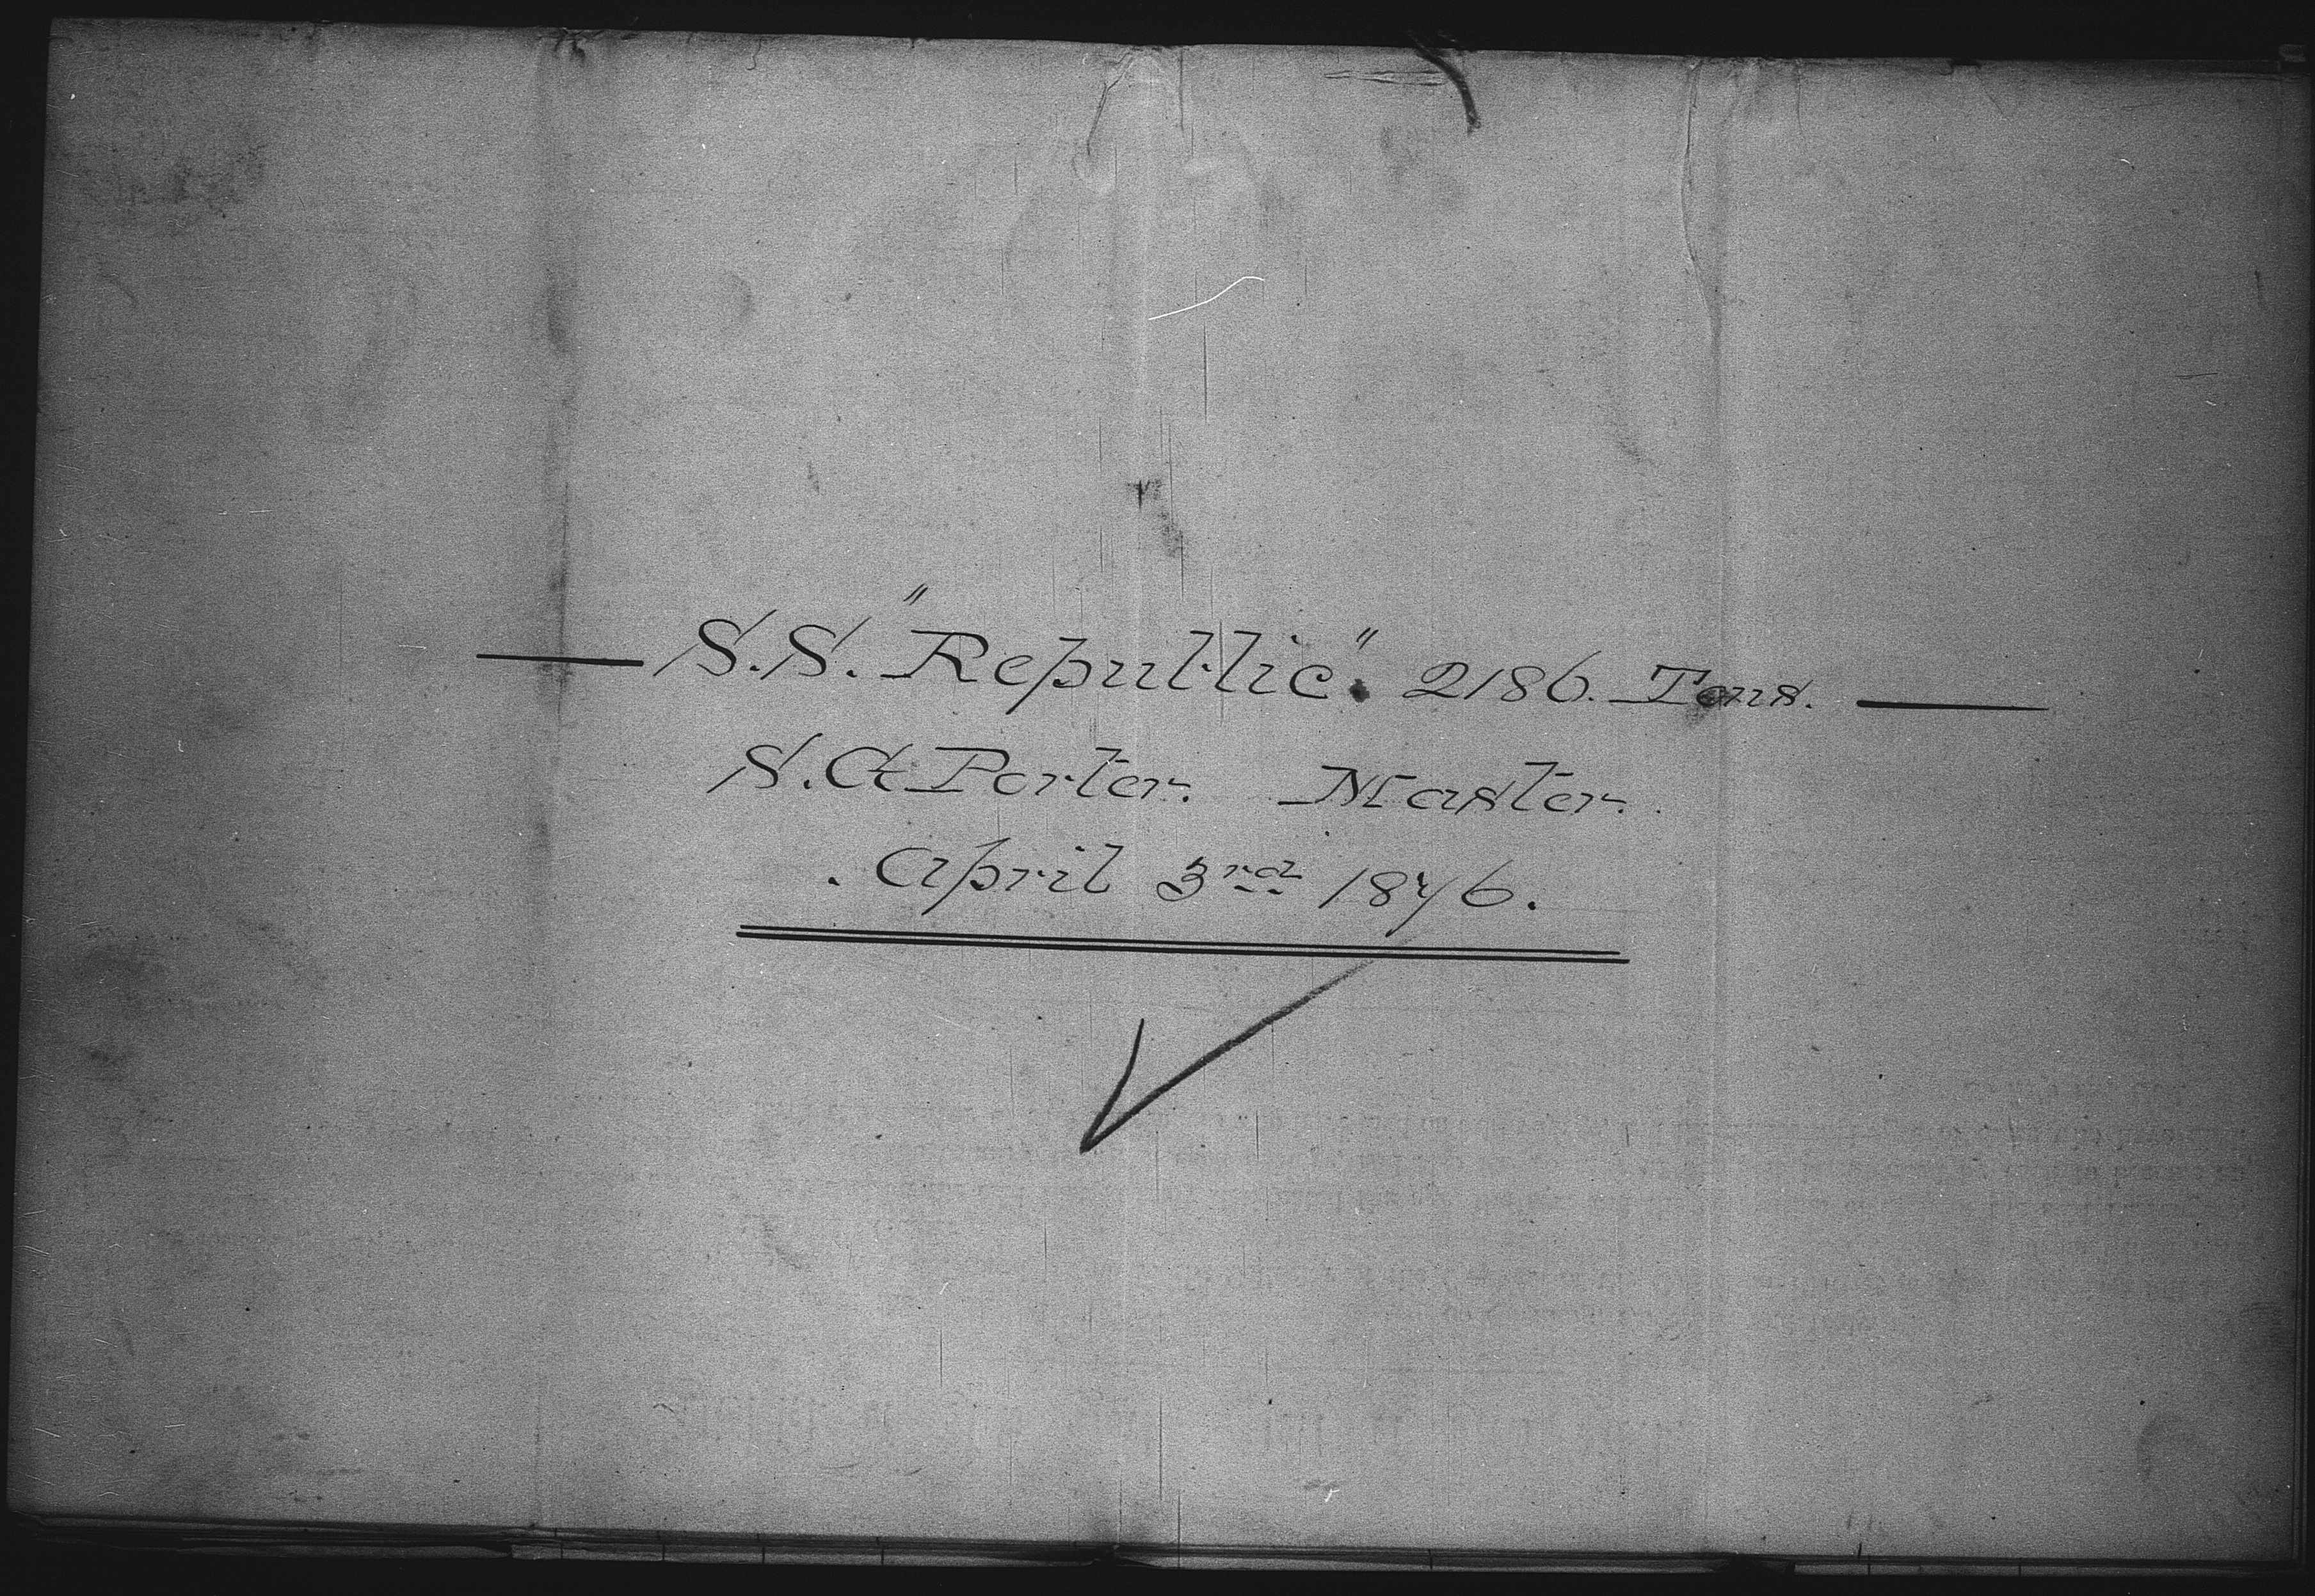 S.S. "Republic". 2186. Tons.
S. A Porter. Master.
. April 3rd 1876.